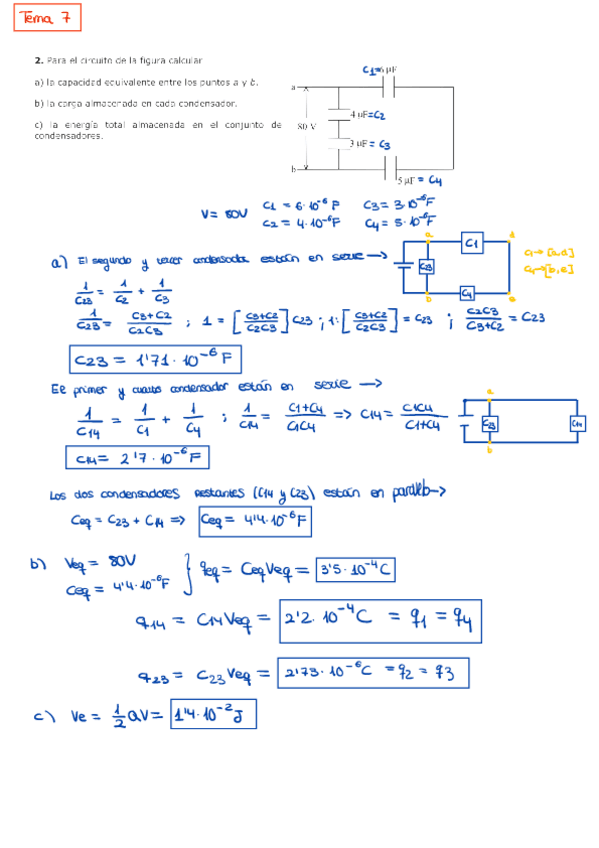 Tema 7
2. Para el circuito de la figura calcular
a) la capacidad equivalente entre los puntos a y b.
b) la carga almacenada en cada condensador.
c) la energía total almacenada en el conjunto de
condensadores.
C1=6 μF
a
4 μF=C2
80 V
3 μF = C3
b
5 μF = C4
V = 80V
C1 = 6·10⁻⁶ F C3 = 3·10⁻⁶F
C2 = 4·10⁻⁶F C4 = 5·10⁻⁶F
a) El segundo y tercer condensador están en serie →
a C1 d
C23
b C4 e
C1→[a,d]
C4→[b,e]
1/C23 = 1/C2 + 1/C3
1/C23 = C3+C2/C2C3 ; 1 = [C3+C2/C2C3] C23 ; 1:[C3+C2/C2C3] = C23 ; C2C3/C3+C2 = C23
C23 = 1'71·10⁻⁶ F
El primer y cuarto condensador están en serie →
1/C14 = 1/C1 + 1/C4 ; 1/C14 = C1+C4/C1C4 => C14 = C1C4/C1+C4
a
C23 C14
b
C14 = 2'7·10⁻⁶ F
Los dos condensadores restantes (C14 y C23) están en paralelo →
Ceq = C23 + C14 => Ceq = 4'4·10⁻⁶ F
b) Veq = 80V
Ceq = 4'4·10⁻⁶F
qeq = Ceq Veq = 3'5·10⁻⁴C
q14 = C14 Veq = 2'2·10⁻⁴C = q1 = q4
q23 = C23 Veq = 2'73·10⁻⁶C = q2 = q3
c) Ve = 1/2 QV = 1'4·10⁻² J